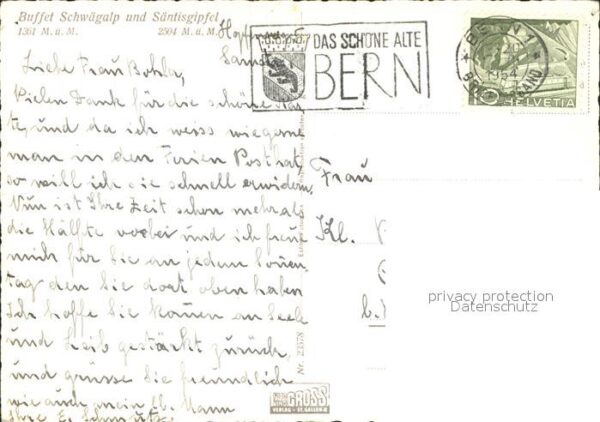 Buffet Schwägalp und Säntisgipfel
1361 M. ü. M. 2504 m. ü. M.
DAS SCHÖNE ALTE
BERN
BERN 1
1954
10 HELVETIA
Liebe Frau Bohla,
Vielen Dank für die schöne Kar
te, und da ich weiss wie gerne
man in den Ferien Post hat,
so will ich sie schnell erwidern.
Nun ist Ihre Zeit schon mehr als
die Hälfte vorbei und ich freue
mich für Sie an jedem Sonnen
tag den Sie dort oben haben
Ich hoffe Sie kommen an Seele
und Leib gestärkt zurück,
und grüsse Sie freundlich
wie auch mein lb. Mann
Ihre E. Schmutz
Frau
Kl.
b.
privacy protection
Datenschutz
Nr. 23578
GROSS
VERLAG - ST. GALLEN